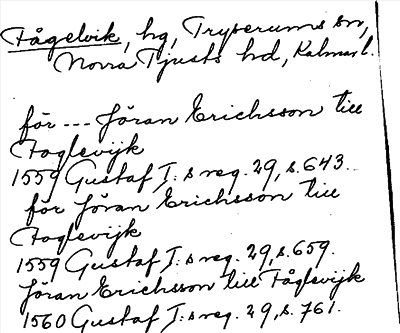 Fågelvik, hg, Tryserums sn,
Norra Tjusts hd, Kalmar l.
för --- Jöran Erichsson till
Foglevijk
1559 Gustaf I:s reg. 29, s. 643.
för Jöran Erichsson till
Foglevijk
1559 Gustaf I:s reg. 29, s. 659.
Jöran Erichsson till Fåglevijk
1560 Gustaf I:s reg. 29, s. 761.